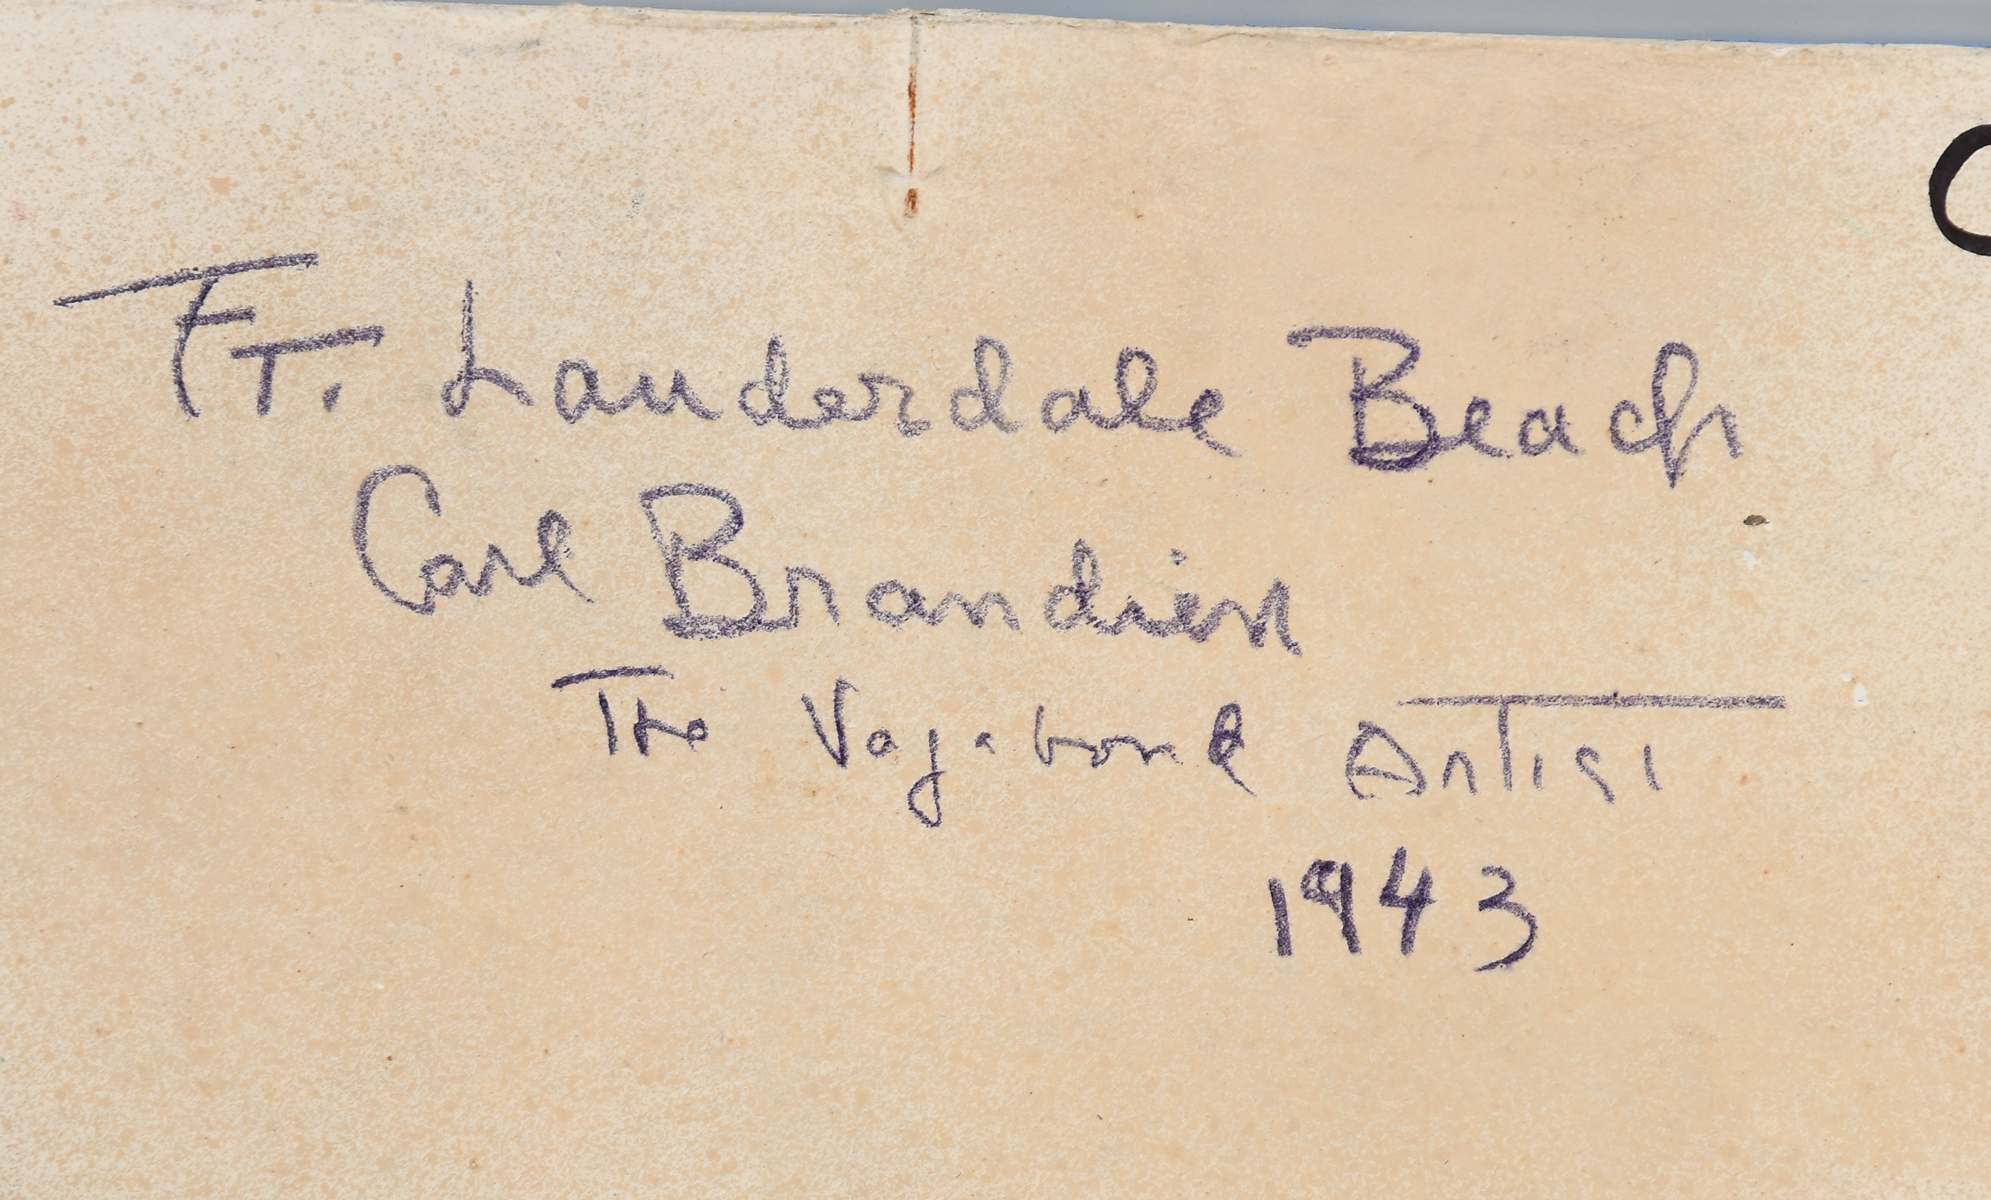 Ft. Lauderdale Beach
Carl Brandien
The Vagabond Artist
1943